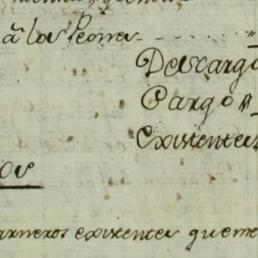 a los Peones
Descargo
Cargo
Existentes
os
carneros existentes que me